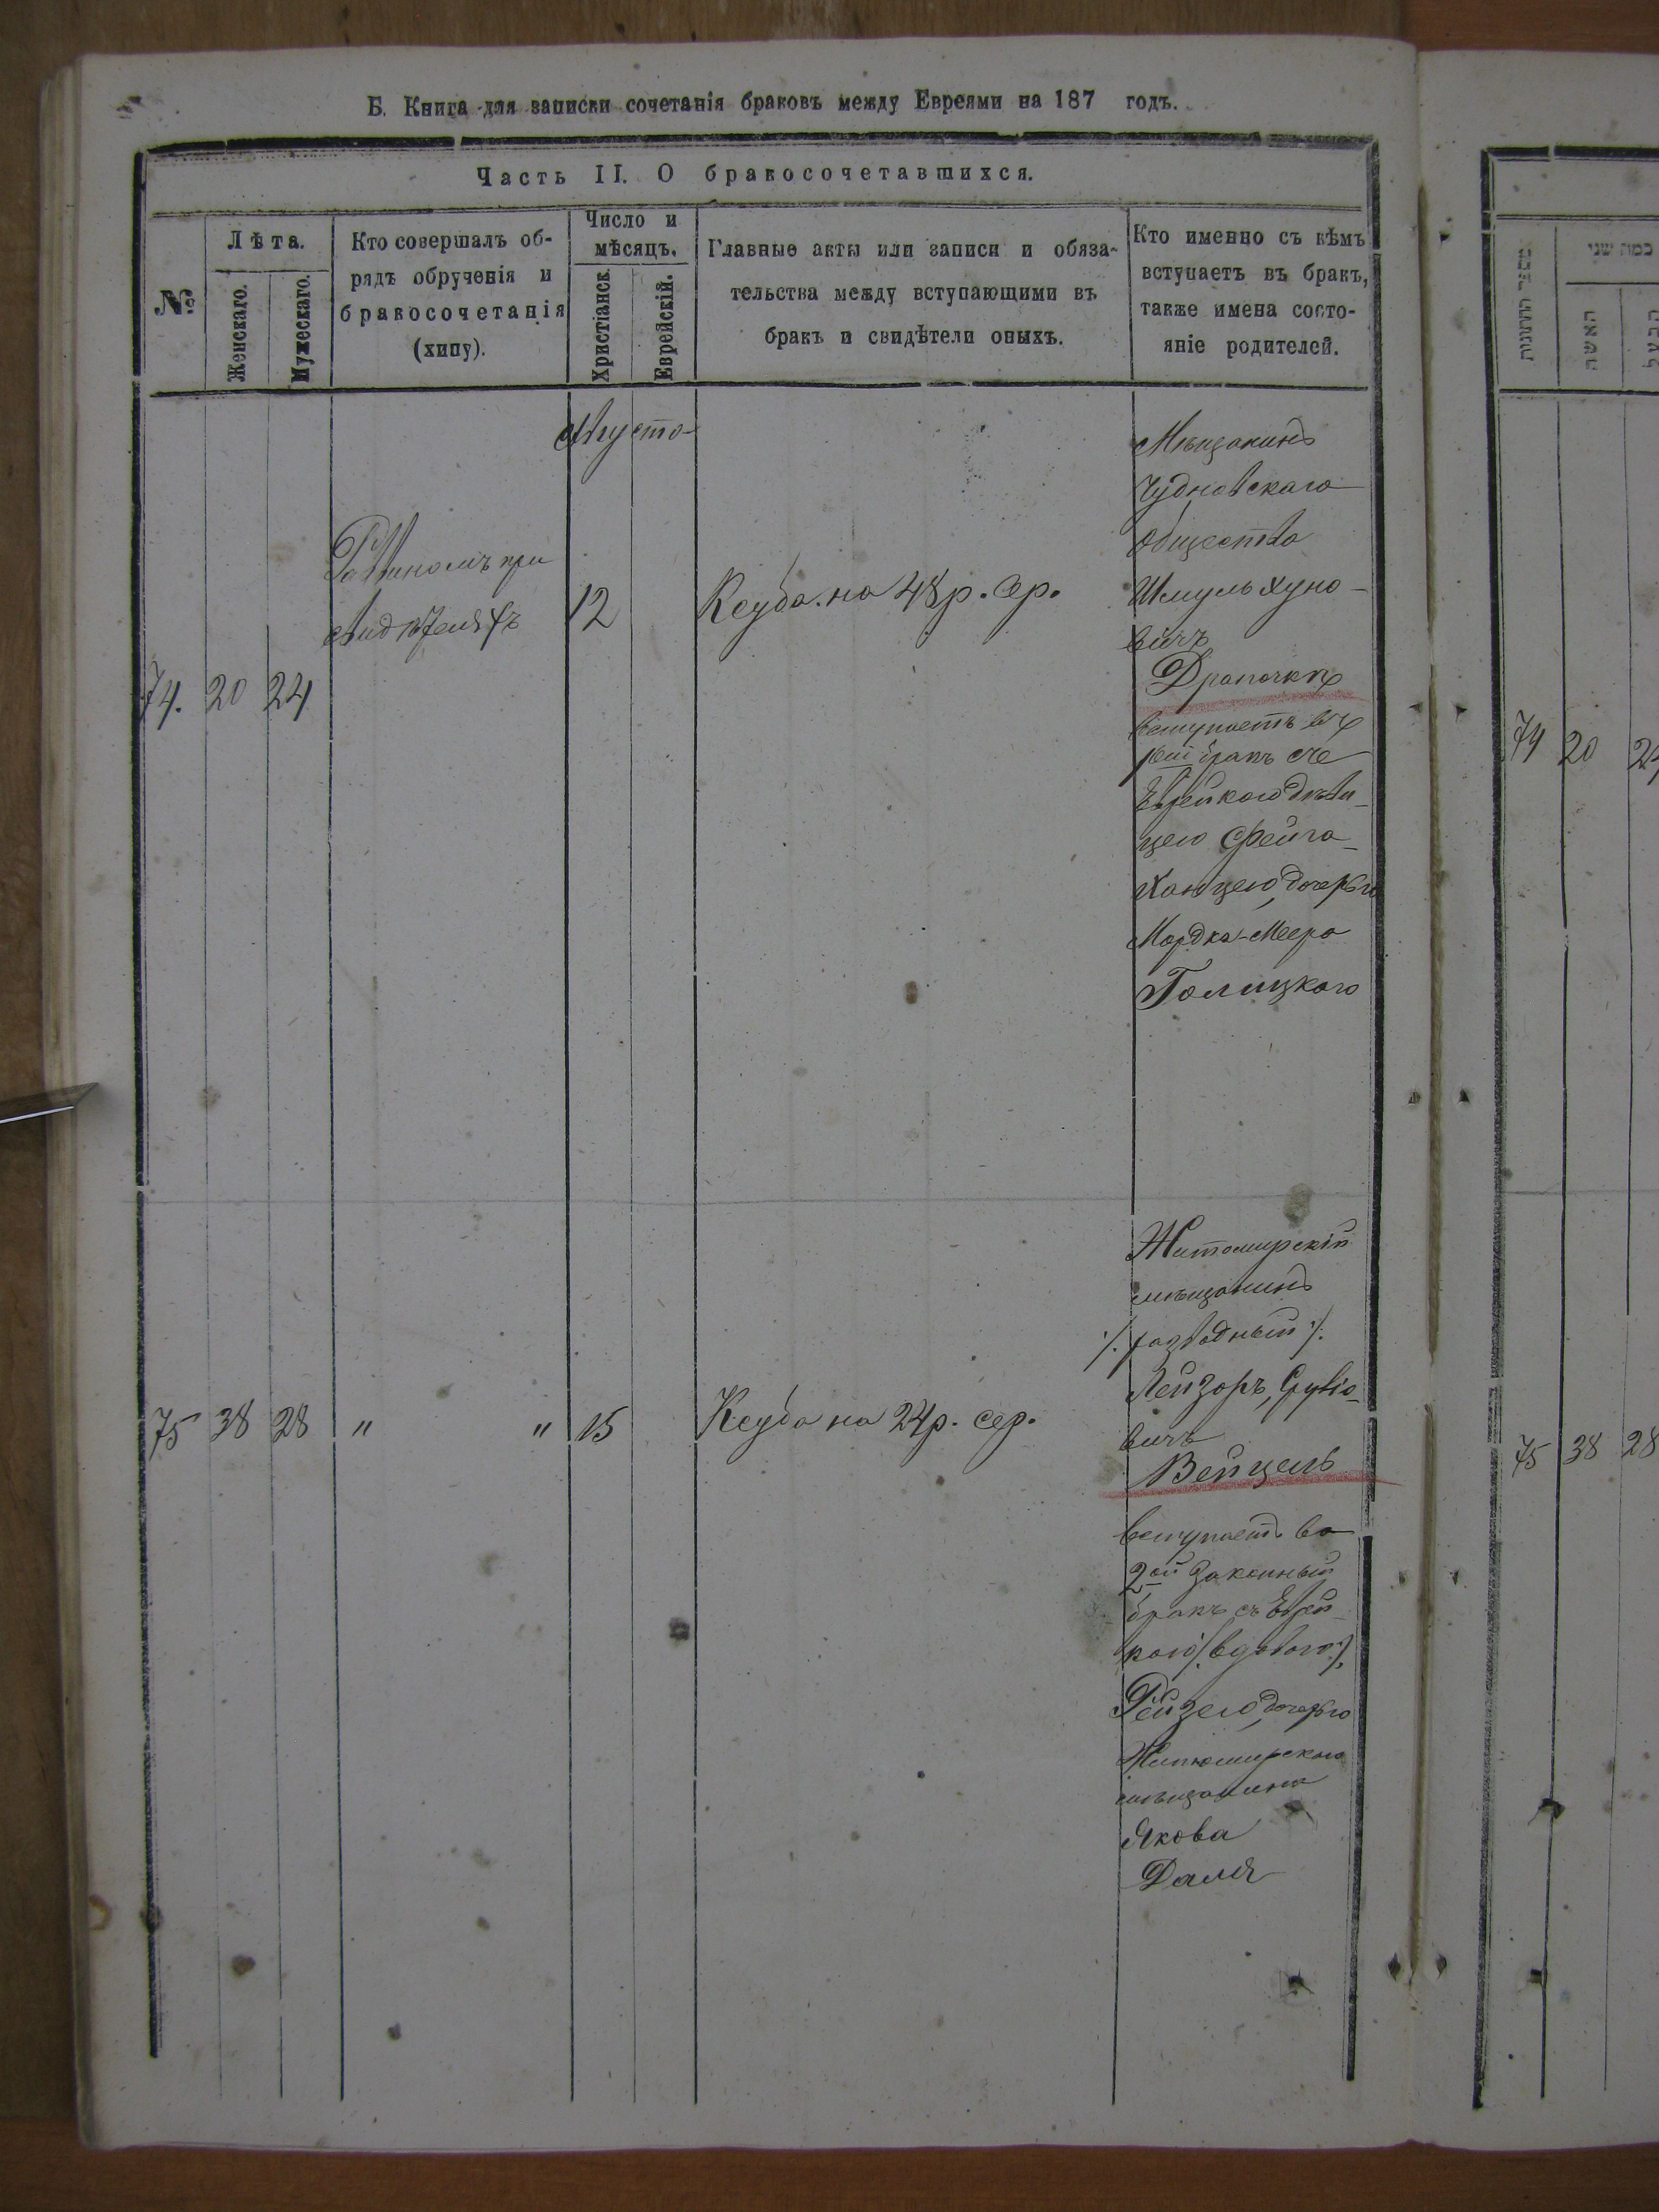 Б. Книга для записки сочетанія браковъ между Евреями на 187 годъ.
Часть II. О бракосочетавшихся.
№
Лѣта.
Женскаго.
Мужескаго.
Кто совершалъ об-
рядъ обрученія и
бракосочетанія
(хипу).
Число и
мѣсяцъ.
Христіанск.
Еврейскій.
Главные акты или записи и обяза-
тельства между вступающими въ
бракъ и свидѣтели оныхъ.
Кто именно съ кѣмъ
вступаетъ въ бракъ,
также имена состо-
яніе родителей.
Августа
74. 20 24
Раввиномъ при
свидѣтеляхъ
12
Ксуба на 48 р. сер.
Мѣщанинъ
Чудновскаго
Общества
Шмуль Хуно-
вичъ
Драпочкъ
вступаетъ въ
1ый бракъ съ
Еврейкою дѣви-
цею Фейга-
Ханцею, дочерью
Мордка-Меера
Голицкаго
75 38 28 " " 15
Ксуба на 24 р. сер.
Житомирскій
мѣщанинъ
/. разводный /.
Лейзоръ
вичъ
Вейцель
вступаетъ во
2ой законный
бракъ съ Еврей-
кою /. вдовою /.
Рейзею, дочерью
Житомирскаго
мѣщанина
Якова
Даля
מספר החתונות
כמה שני
האשה
הבעל
74 20 24
75 38 28